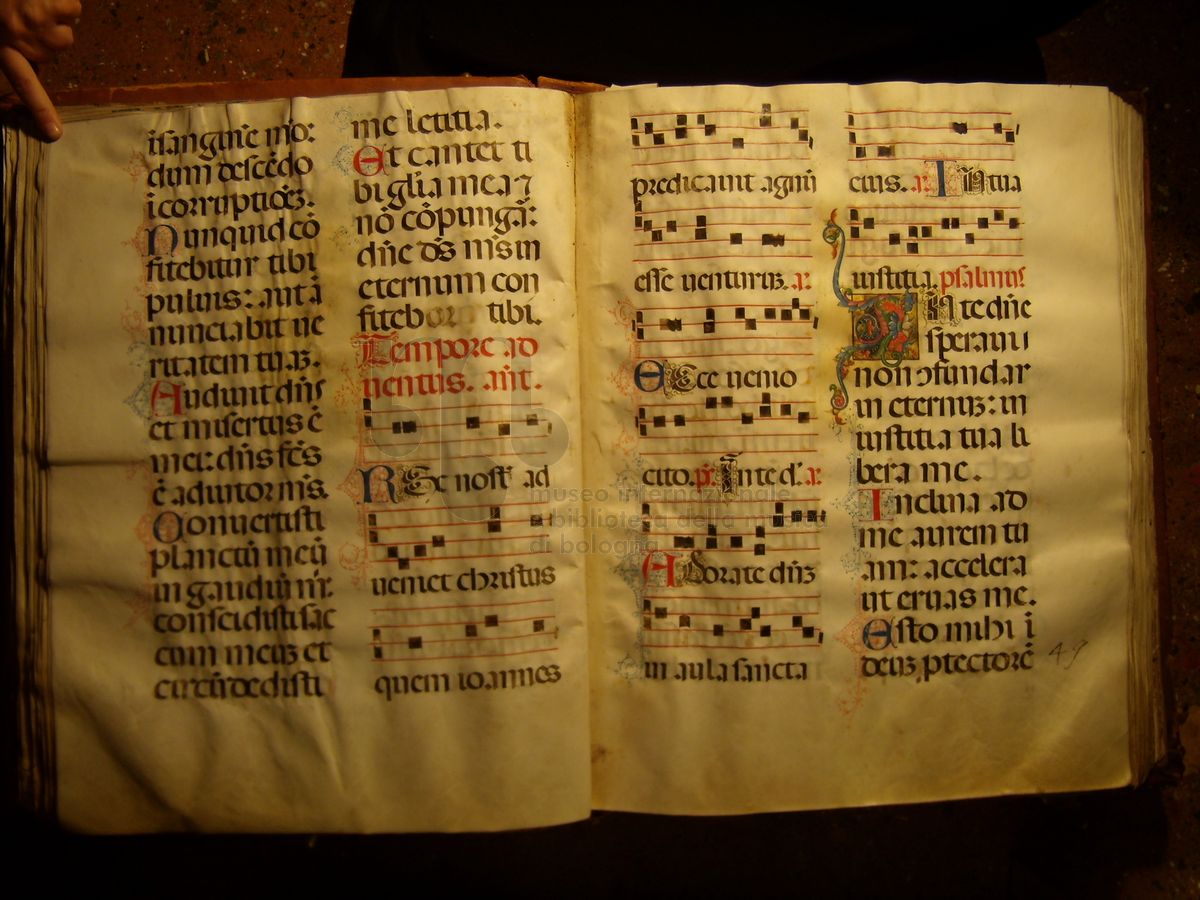 i sanguine meo:
dum descēdo
i corruptiōez.
Nunquid cō
fitebitur tibi
puluis: aut ā
nunciabit ue
ritatem tuaz.
Audiuit dn̄s
et misertus ē
mei: dn̄s fc̄s
ē adiutor m̄s.
Conuertisti
planctū meū
in gaudiū m̄:
conscidisti sac
cum meuz et
circūdedisti
me letitia.
Et cantet ti
bi glīa mea ⁊
nō cōpungar̄:
dn̄e ds̄ m̄s in
eternum con
fitebor tibi.
Tempore ad
uentus. ant̄.
REx nostr̄ ad
ueniet christus
quem ioannes
predicauit agnū
esse venturuz. a:
ECce uenio
cito. ps̄. In te d. a:
ADorate dn̄z
in aula sancta
eius. a: IN tua
iustitia. psalmus
IN te dn̄e
speraui
non ↄfundar
in eternuz: in
iustitia tua li
bera me.
Inclina ad
me aurem tu
am: accelera
ut eruas me.
Esto mihi ī
deuz ptectorē
49
museo internazionale
e biblioteca della musica
di bologna